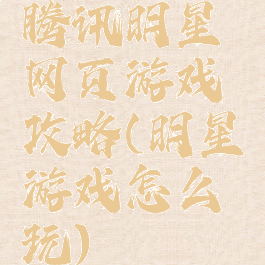 腾讯明星
网页游戏
攻略(明星
游戏怎么
玩)